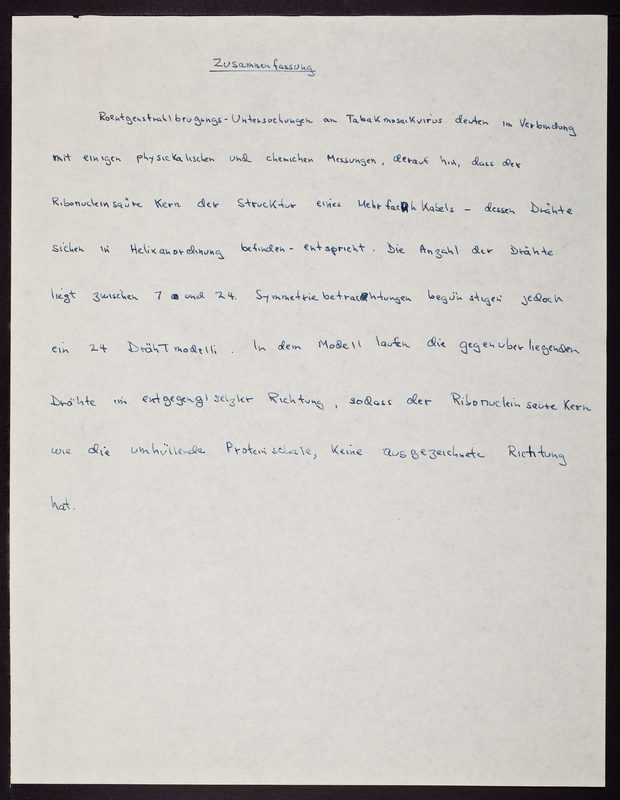 Zusammenfassung
Roentgenstrahlbeugungs-Untersuchungen an Tabakmosaikvirus deuten im Verbindung
mit einigen physickalischen und chemichen Messungen, derauf hin, dass der
Ribonucleinsaüre Kern der Strucktur eines Mehrfach Kabels – dessen Drähte
sichen in Helixanordnung befinden – entspricht. Die Anzahl der Drähte
liegt zwischen 7 und 24. Symmetriebetrachtungen begünstigen jedoch
ein 24 DrähTmodelli. In dem Modell laufen die gegenuberliegenden
Drähte im entgegengiselzler Richtung, sodass der Ribonucleinsaure Kern
wie die umhüllende Proteinschale, Keine ausgezeichnete Richtung
hat.